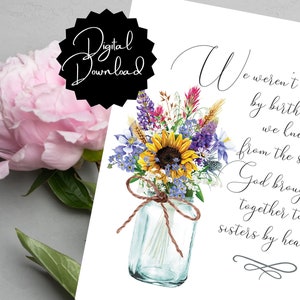 Digital
Download
We weren't
by birth
we
from the
God
together
sisters by